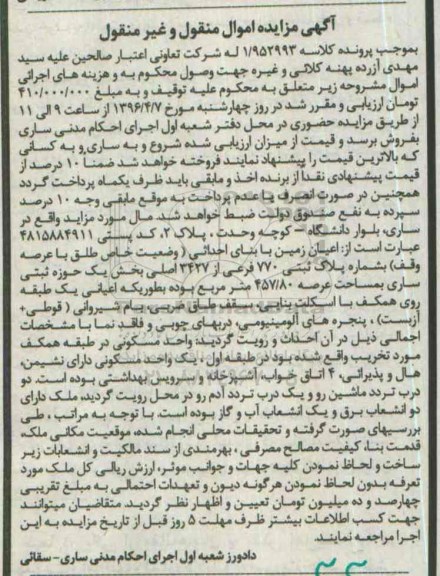 آگهی مزایده اموال منقول و غیر منقول
بموجب پرونده کلاسه ۱/۹۵۲۹۹۳ له شرکت تعاونی اعتبار صالحین علیه سید
مهدی آزرده پهنه کلائی و غیره جهت وصول محکوم به و هزینه های اجرائی
اموال مشروحه زیر متعلق به محکوم علیه توقیف و به مبلغ ۴۱۰/۰۰۰/۰۰۰
تومان ارزیابی و مقرر شد در روز چهارشنبه مورخ ۱۳۹۶/۴/۷ از ساعت ۹ الی ۱۱
از طریق مزایده حضوری در محل دفتر شعبه اول اجرای احکام مدنی ساری
بفروش برسد و قیمت از میزان ارزیابی شده شروع و به ساری و به کسانی
که بالاترین قیمت را پیشنهاد نمایند فروخته خواهد شد ضمناً ۱۰ درصد از
قیمت پیشنهادی نقداً از برنده اخذ و مابقی باید ظرف یکماه پرداخت گردد
همچنین در صورت انصراف یا عدم پرداخت به موقع مابقی وجه ۱۰ درصد
سپرده به نفع صندوق دولت ضبط خواهد شد. مال مورد مزاید واقع در
ساری، بلوار دانشگاه - کوچه وحدت، پلاک ۲، کد پستی ۴۸۱۵۸۸۴۹۱۱
عبارت است از: اعیان زمین با بنای احداثی (وضعیت خاص طلق با عرصه
وقف) بشماره پلاک ثبتی ۷۷۰ فرعی از ۳۴۲۷ اصلی بخش یک حوزه ثبتی
ساری بمساحت عرصه ۴۵۷/۸۰ متر مربع بوده بطوریکه اعیانی یک طبقه
روی همکف با اسکلت بنایی، سقف طاق ضربی، بام شیروانی (قوطی+
آزبست)، پنجره های آلومینیومی، دربهای چوبی و فاقد نما با مشخصات
اجمالی ذیل در آن احداث و رویت گردید: واحد مسکونی در طبقه همکف
مورد تخریب واقع شده بود در طبقه اول، یک واحد مسکونی دارای نشیمن،
هال و پذیرائی، ۴ اتاق خواب، آشپزخانه و سرویس بهداشتی بوده است. دو
درب تردد ماشین رو و یک درب تردد آدم رو در محل رویت گردید، ملک دارای
دو انشعاب برق و یک انشعاب آب و گاز بوده است. با توجه به مراتب، طی
بررسیهای صورت گرفته و تحقیقات محلی انجام شده، موقعیت مکانی ملک،
قدمت بنا، کیفیت مصالح مصرفی، بهرمندی از سند مالکیت و انشعابات زیر
ساخت و لحاظ نمودن کلیه جهات و جوانب موثر، ارزش ریالی کل ملک مورد
تعرفه بدون لحاظ نمودن هرگونه دیون و تعهدات احتمالی به مبلغ تقریبی
چهارصد و ده میلیون تومان تعیین و اظهار نظر گردید. متقاضیان میتوانند
جهت کسب اطلاعات بیشتر ظرف مهلت ۵ روز قبل از تاریخ مزایده به این
اجرا مراجعه نمایند.
دادورز شعبه اول اجرای احکام مدنی ساری- سقائی